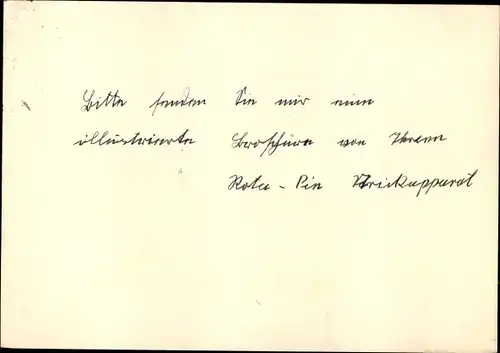 Bitte senden Sie mir eine
illustrierte Broschüre von Ihrem
Rota-Pin Strickapparat